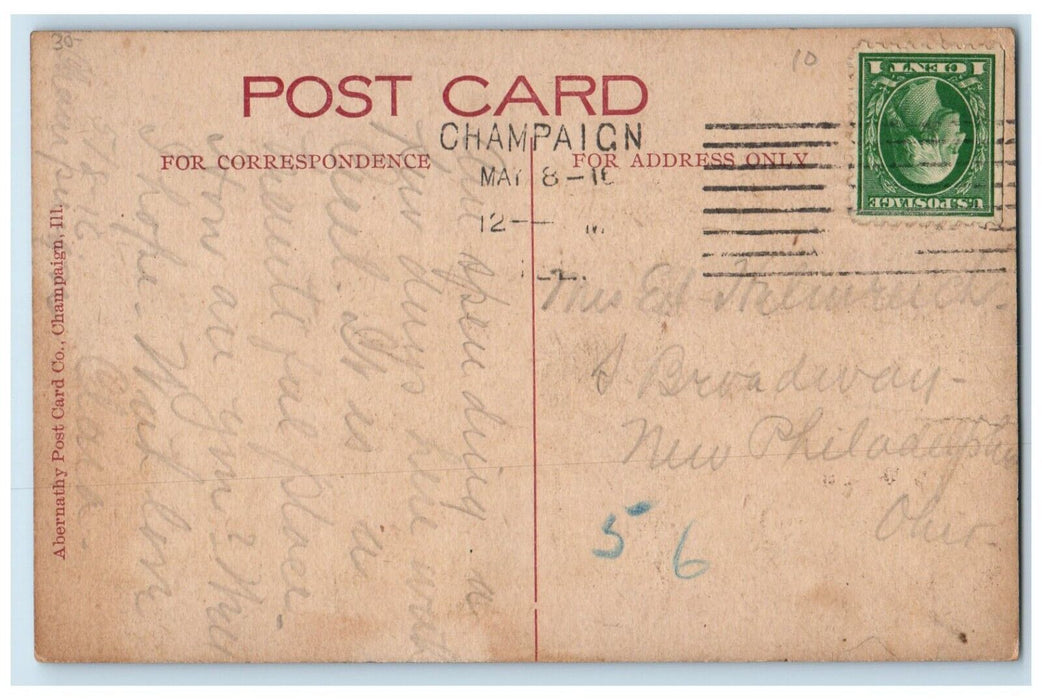 30-
10
1 CENT 1
U.S. POSTAGE
POST CARD
CHAMPAIGN
MAY 8-16
12 — M
FOR CORRESPONDENCE
FOR ADDRESS ONLY
Abernathy Post Card Co., Champaign, Ill.
Champaign
5-8-16
Am spending a
few days here with
Carl. It is a
beautiful place.
How are you?
I hope. With love
Clara.
Mrs Ed
S Broadway
New Philadelphia
Ohio.
5 6